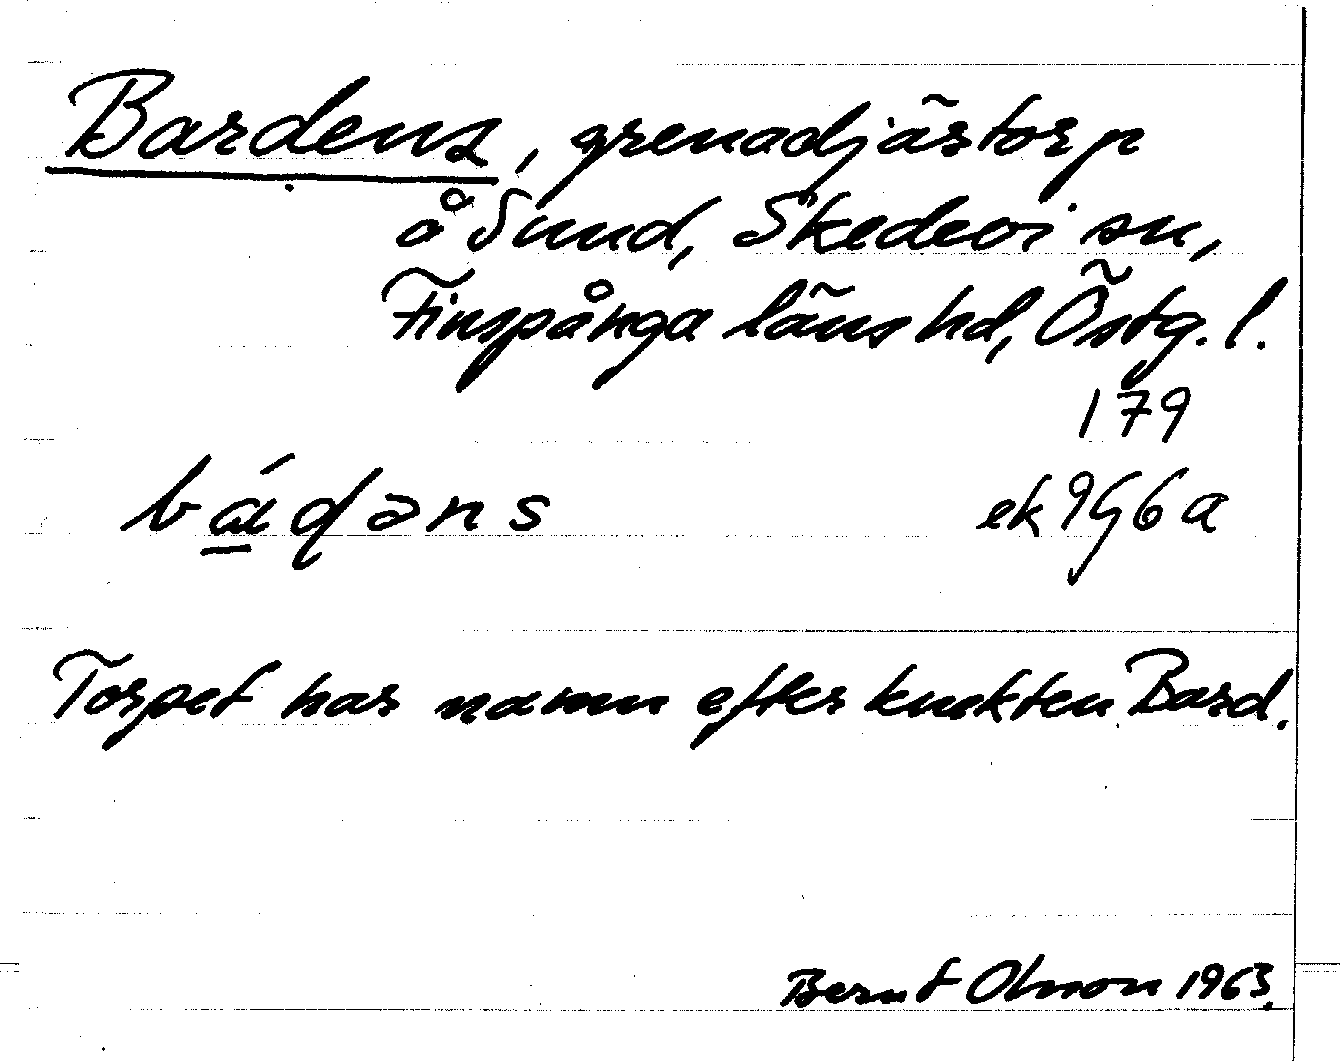 Bardens, grenadjärstorp
å Sund, Skedevi sn,
Finspånga läns hd, Östg. l.
179
bádəns
ek 9G6a
Torpet har namn efter knekten Bard.
Bernt Olsson 1963.